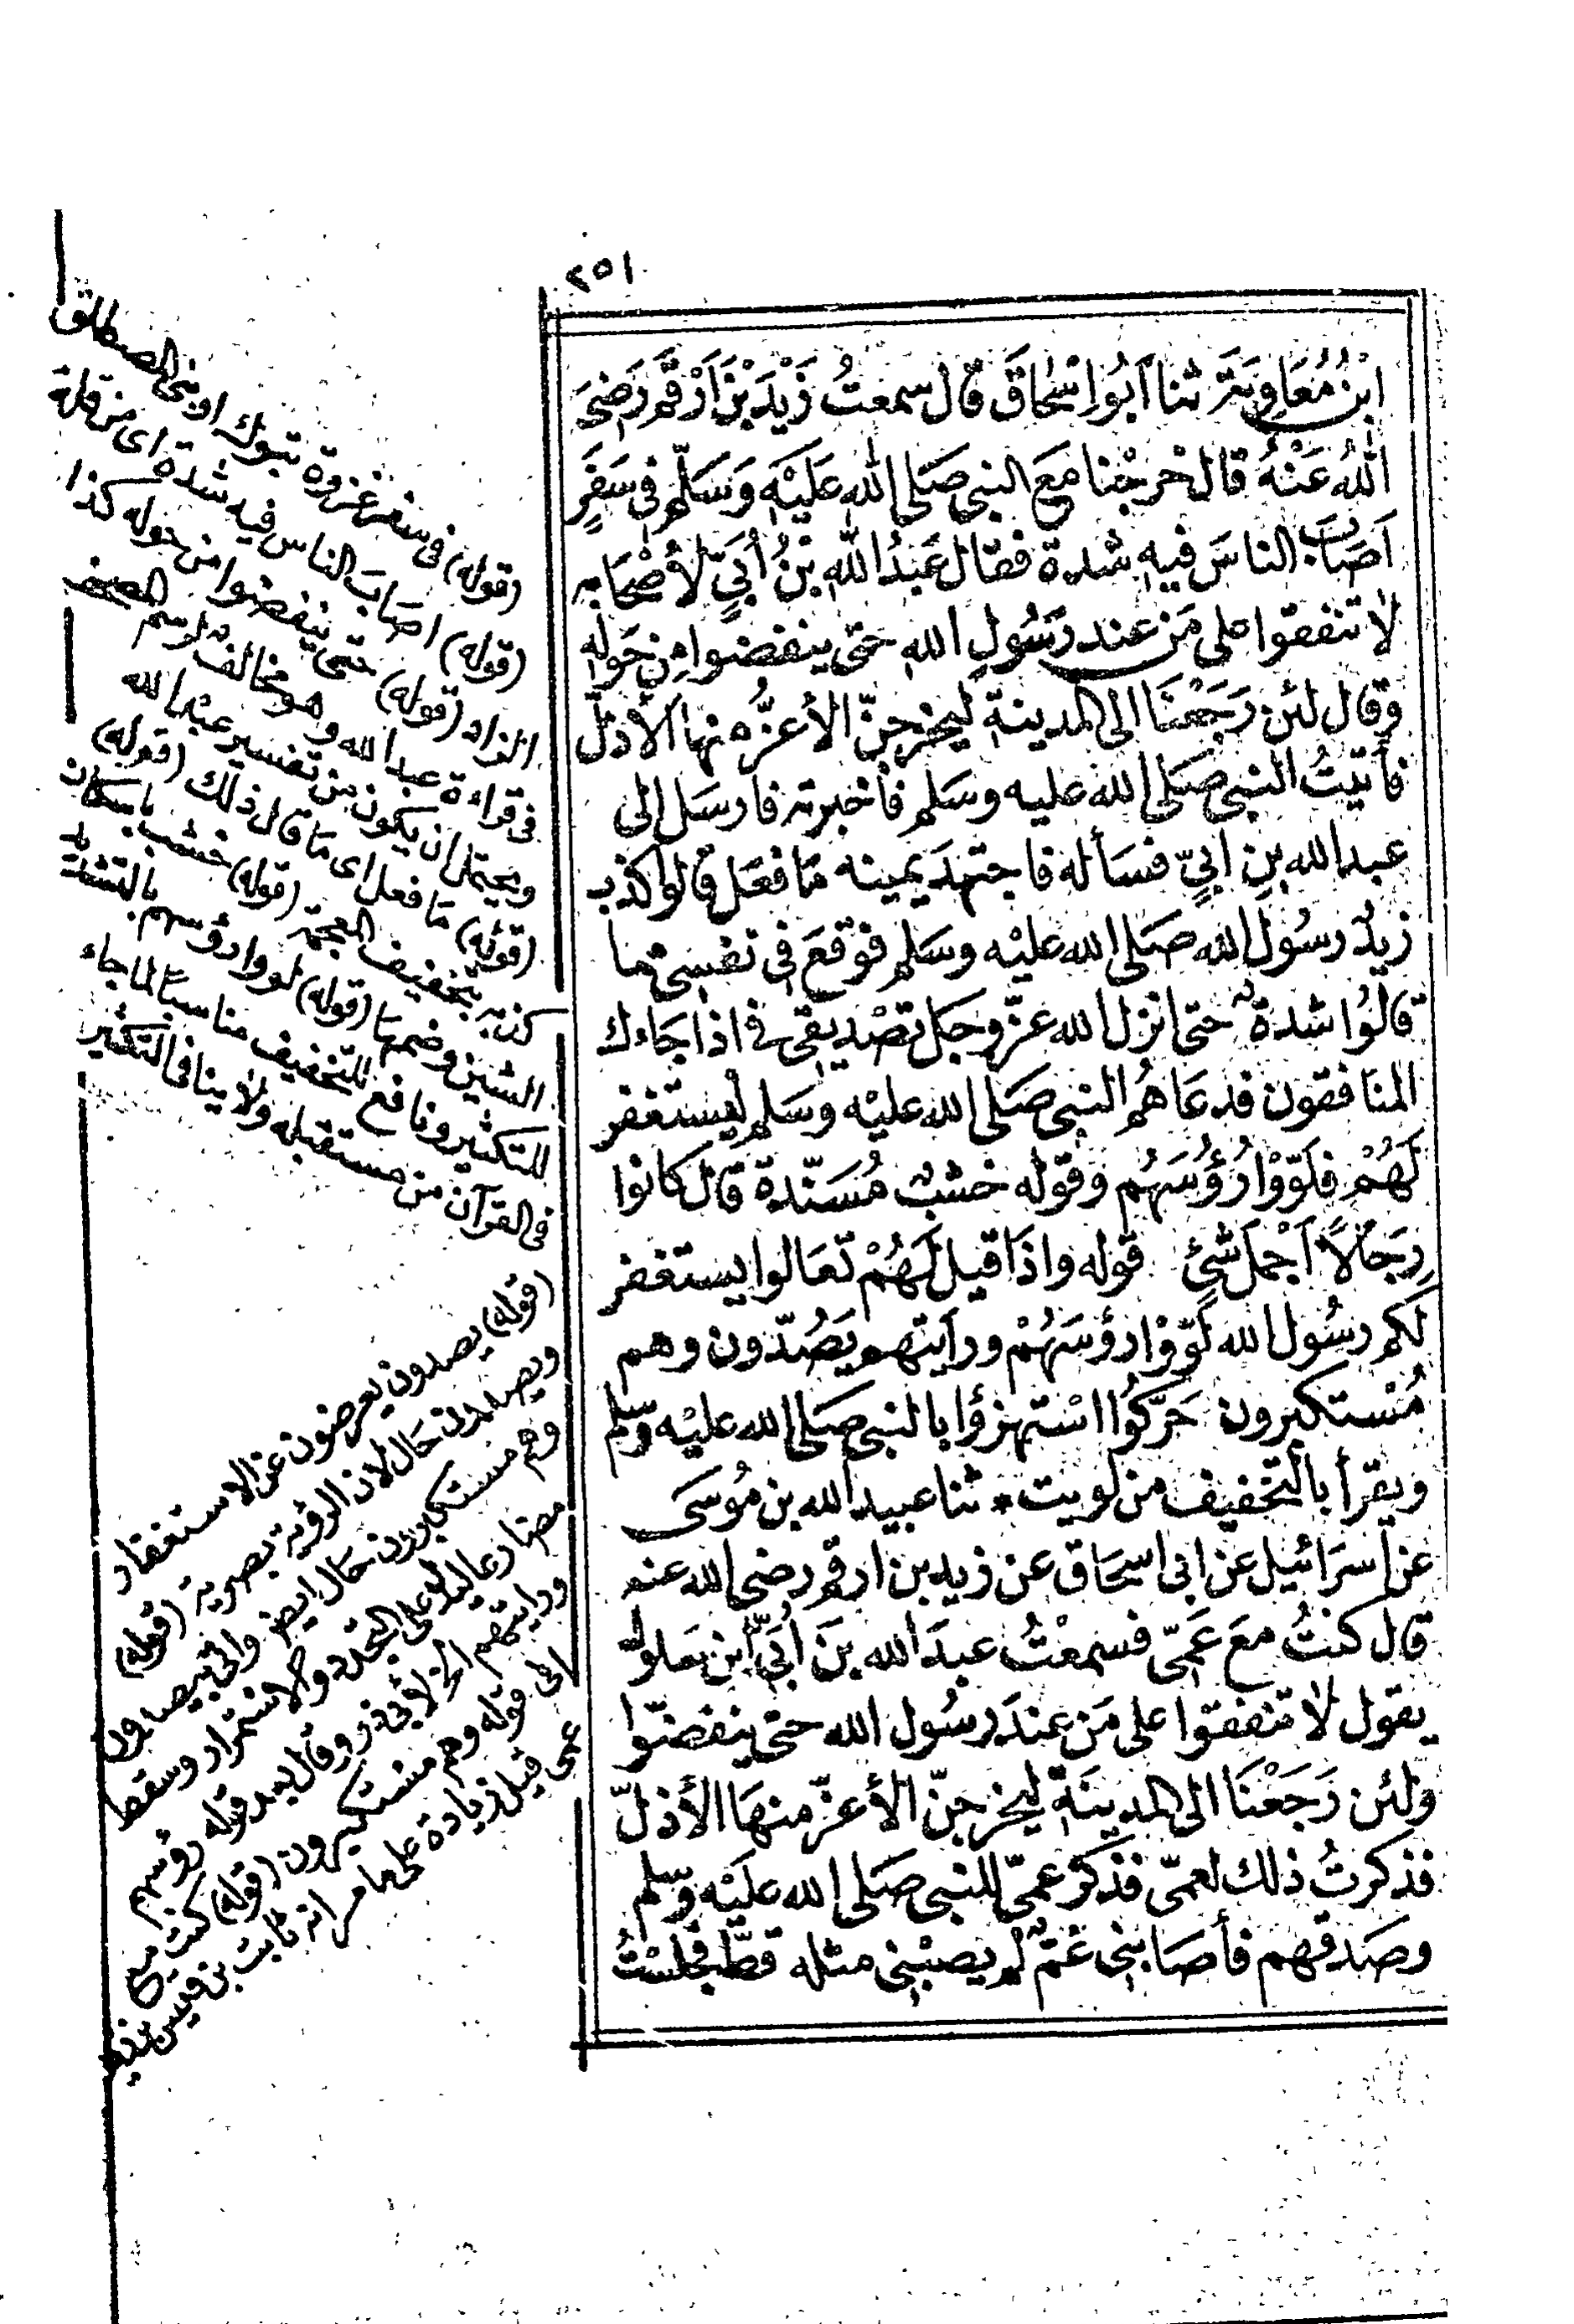 ٢٥١
ابْنُ مُعَاوِيَة ثنا اَبُو اِسْحَاقَ قال سمعتُ زَيْدَ بْنَ اَرْقَمَ رَضىَ
اللهُ عَنْهُ قال خرجْنا مَعَ النبى صَلى الله عَلَيْه وَسَلّم فى سَفَرٍ
اَصَابَ الناسَ فيه شدة فقال عَبْدُ الله بْنُ اُبَىٍّ لأصْحَابه
لا تنفقوا على مَن عند رَسُولِ الله حَتى ينفضوا مِن حَوْله
وقال لئن رَجَعْنَا الى المدينة ليخرجنّ الأعزُّ منها الأذلّ
فأتيتُ النبى صَلى الله عليه وسَلم فأخبرته فارسَل الى
عبد الله بنِ ابىٍّ فسَأله فاجتهدَ يمينه مَا فعَل قالوا كذب
زيدٌ رسُول الله صَلى الله عليْه وسَلم فوقعَ فى نفسى مما
قالوُا شدةٌ حتى انزل الله عزّ وجَل تصْديقى فى اذا جَاءك
المنافقون فدعَاهُم النبى صَلى الله عليْه وسَلم ليستغفر
لَهُمْ فلَوّوْا رُؤُسَهُم وقوْله خشبٌ مُسَنّدة قال كانوا
رِجَالاً اَجْمَلَ شئٍ قوله واذَا قيل لَهُمْ تعَالوا يستغفر
لكم رسُول الله لوّوْا رؤسَهُمْ ورأيتهم يَصُدّون وهم
مُسْتكبرون حَرّكُوا اسْتهزؤا بالنبى صَلى الله عليْه وسّلم
ويقرأ بالتخفيف من لويت * ثنا عبيد الله بن مُوسَى
عن اسرَائيل عن ابى اسحَاق عن زيد بن ارقم رضى الله عنه
قال كنتُ معَ عَمّى فسمعْتُ عبدَ الله بنَ اُبَىٍّ ابن سَلول
يقول لا تنفقوا على مَن عندَ رسُول الله حتى ينفضّوا
ولئن رَجَعْنَا الى المدينَة ليخرجنّ الأعزّ منهَا الأذلّ
فذكرتُ ذلك لعمّى فذكرَ عمّى للنبى صَلى الله عليْه وسّلم
وصَدقهم فأصَابنى غمٌّ لم يصبْنى مثله قطّ فجلسْتُ
(قوله) فى سفر غزوة تبوك او بنى المصطلق
(قوله) اصَابَ الناس فيه شدة اى من قلة
الزاد (قوله) حتى ينفضوا من حوله كذا
فى قراءة عبد الله وهو مخالف لرسم المصحف
ويحتمل ان يكون من تفسير عبد الله
(قوله) مَا فعل اى مَا قال ذلك (قوله)
كذب بتخفيف المعجمة (قوله) خشب باسكان
الشين وضمها (قوله) لووا رؤسهم بالتشديد
للتكثير ونافع للتخفيف مناسبًا لما جاء
فى القرآن من مستقبله ولا ينافى التكثير
(قوله) يصدون يعرضون عن الاستغفار
ويصدون حَال لان الرؤية بصرية (قوله)
وهم مستكبرون حَال ايضا واتى بيصدون
مضارعا ليدل على التجدد والاستمرار وسقط
ورأيتهم الخ لأبى ذر وقال بعد قوله رؤسهم
الى قوله وهم مستكبرون (قوله) كنت مع
عمى قيل زيادة على ما مر انه ثابت بن قيس بن زيد